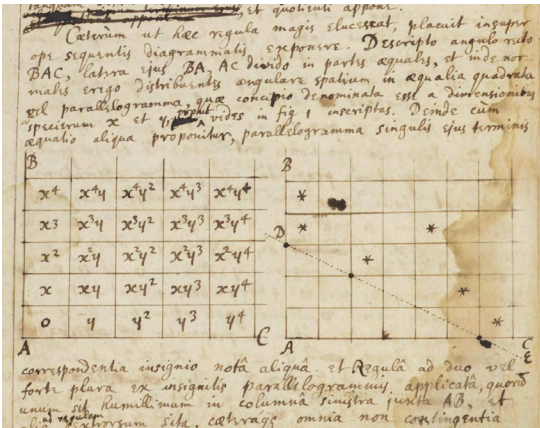 et quotienti appone.
Cæterum ut hæc regula magis elucescat, placuit insuper
ope sequentis diagrammatis exponere. Descripto angulo recto
BAC, latera ejus BA, AC divido in partes æquales, et inde nor
males erigo distribuentes angulare spatium in æqualia quadrata
vel parallelogramma, quæ concipio denominata esse a dimensionibus
specierum x et y, prout vides in fig 1 inscriptas. Deinde cùm
æquatio aliqua proponitur, parallelogramma singulis ejus terminis
B
x4 x4y x4y2 x4y3 x4y4
x3 x3y x3y2 x3y3 x3y4
x2 x2y x2y2 x2y3 x2y4
x xy xy2 xy3 xy4
0 y y2 y3 y4
A C
B
* 
* *
D
*
*
*
A C
E
correspondentia insignio notâ aliquâ. et Regulâ ad duo vel
forte plura ex insignitis parallelogrammis applicatâ, quorum
unum sit humillimum in columnâ sinistra juxta AB, et
ad regulam
dextrorsum sita, cæteraqs omnia non contingentia